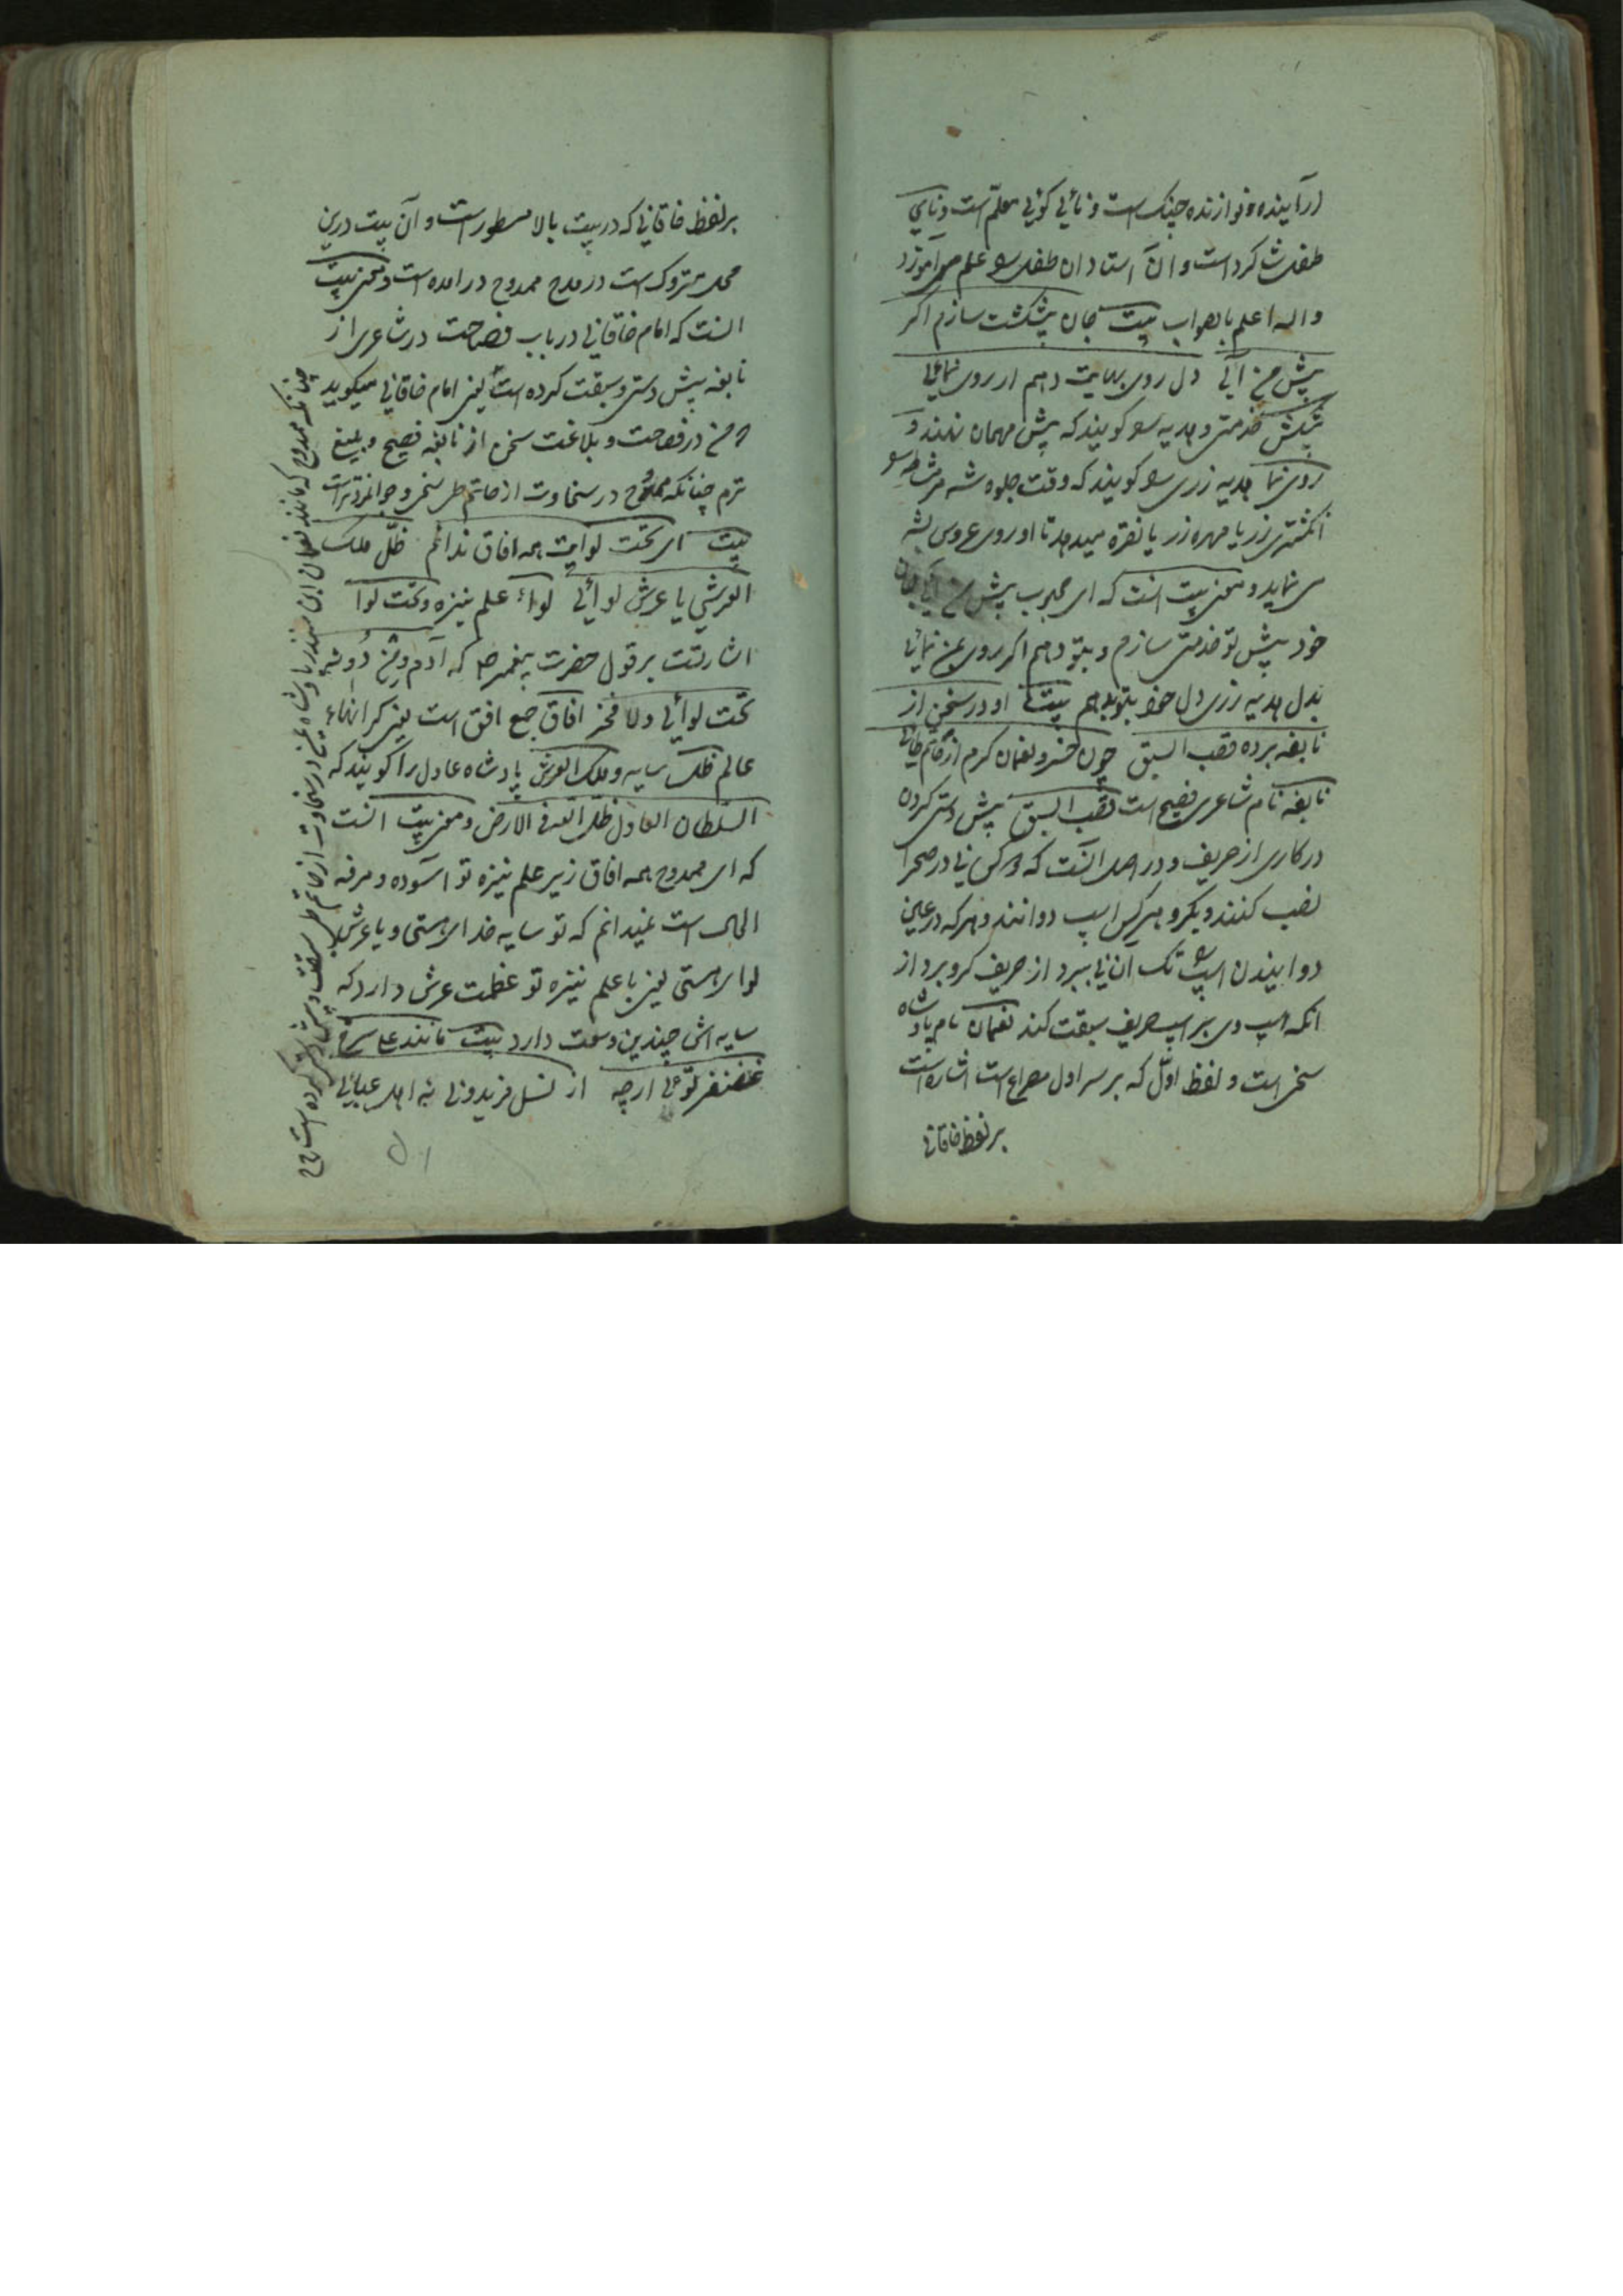 درآینده و نوازنده چنگ است و نائی گوئی معلم است و نای
طفل شاگرد است و آن استادان طفل را علم می آموزد
والله اعلم بالصواب بیت جان پیشکشت سازم اگر
پیش من آئی دل روی بهایت دهم ار روی نمائی
پیشکش خدمتی و هدیه را گویند که پیش مهمان نهند و
روی نما هدیه زری را گویند که وقت جلوه شه مر مشاطه را
انگشتری زر یا مهره زر یا نقره میدهد تا او روی عروس بشه
می نماید و معنی بیت آنست که ای محبوب پیش من آئی جان
خود پیش تو خدمتی سازم و بتو دهم اگر روی بمن نمائی
بدل هدیه زری دل خود بتو بدهم بیت او در سخن از
نابغه برده قصب السبق چون خسرو نعمان کرم از حاتم طائی
نابغه نام شاعری فصیح است قصب السبق پیش دستی کردن
در کاری از حریف و در اصل آنست که نی در صحرا
نصب کنند و بگرو هر کس اسپ دوانند و هر که در عین
دوانیدن اسپ را تک آن نی ببرد از حریف گرو برد از
آنکه اسپ وی بر اسپ حریف سبقت کند نعمان نام پادشاه
سخی است و لفظ اول که بر سر اول مصراع است اشارتست
بر لفظ خاقانی
بر لفظ خاقانی که در بیت بالا مسطور است و آن بیت درین
محل متروک است در مدح ممدوح در آمده است و معنی بیت
آنست که امام خاقانی در باب فصاحت در شاعری از
نابغه پیش دستی و سبقت کرده است یعنی امام خاقانی میگوید
که من در فصاحت و بلاغت سخن از نابغه فصیح و بلیغ
ترم چنانکه ممدوح در سخاوت از حاتم طی سخی و جوانمردتر است
بیت ای تحت لوایت همه آفاق ندانم ظل ملک
العرشی یا عرش لوائی لواء علم نیزه و تحت لوا
اشارتست بر قول حضرت پیغمبر صلعم که آدم و من دونه
تحت لوائی ولا فخر آفاق جمع افق است یعنی کرانهاء
عالم ظل سایه و ملک العرش پادشاه عادل را گویند که
السلطان العادل ظل الله فی الارض و معنی بیت آنست
که ای ممدوح همه آفاق زیر علم نیزه تو آسوده و مرفه
الحال است نمیدانم که تو سایه خدای هستی و یا عرش
لوای هستی یعنی با علم نیزه تو عظمت عرش دارد که
سایه اش چندین وسعت دارد بیت مانند علی سرخ
غضنفر توئی ارچه از نسل فریدونی نه اهل عبائی
چنانکه ممدوح که مانند نعمان ابن منذر پادشاه یمن در سخاوت از حاتم طی سبقت و پیش دستی کرده است